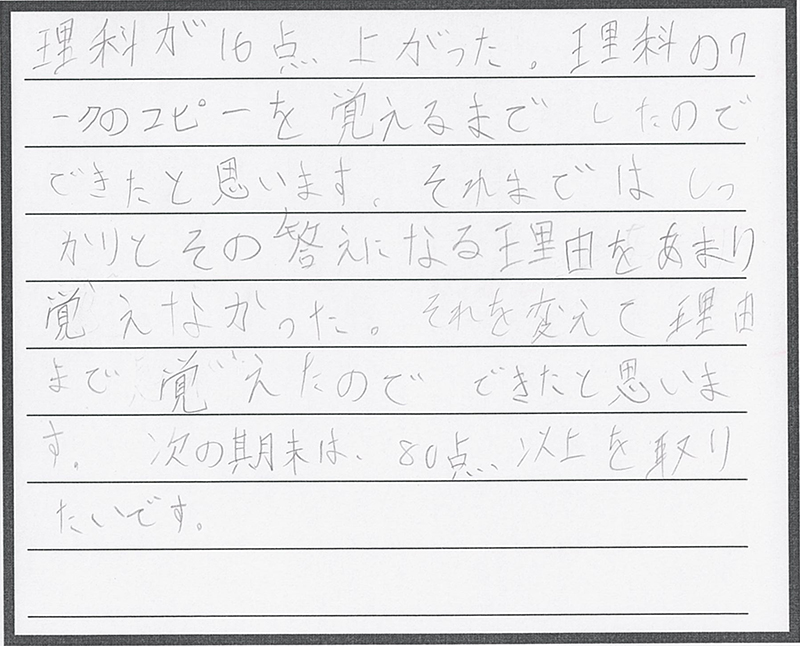 理科が16点上がった。理科のワ
ークのコピーを覚えるまでしたので
できたと思います。それまではしっ
かりとその答えになる理由をあまり
覚えなかった。それを変えて理由
まで覚えたのでできたと思いま
す。次の期末は、80点以上を取り
たいです。